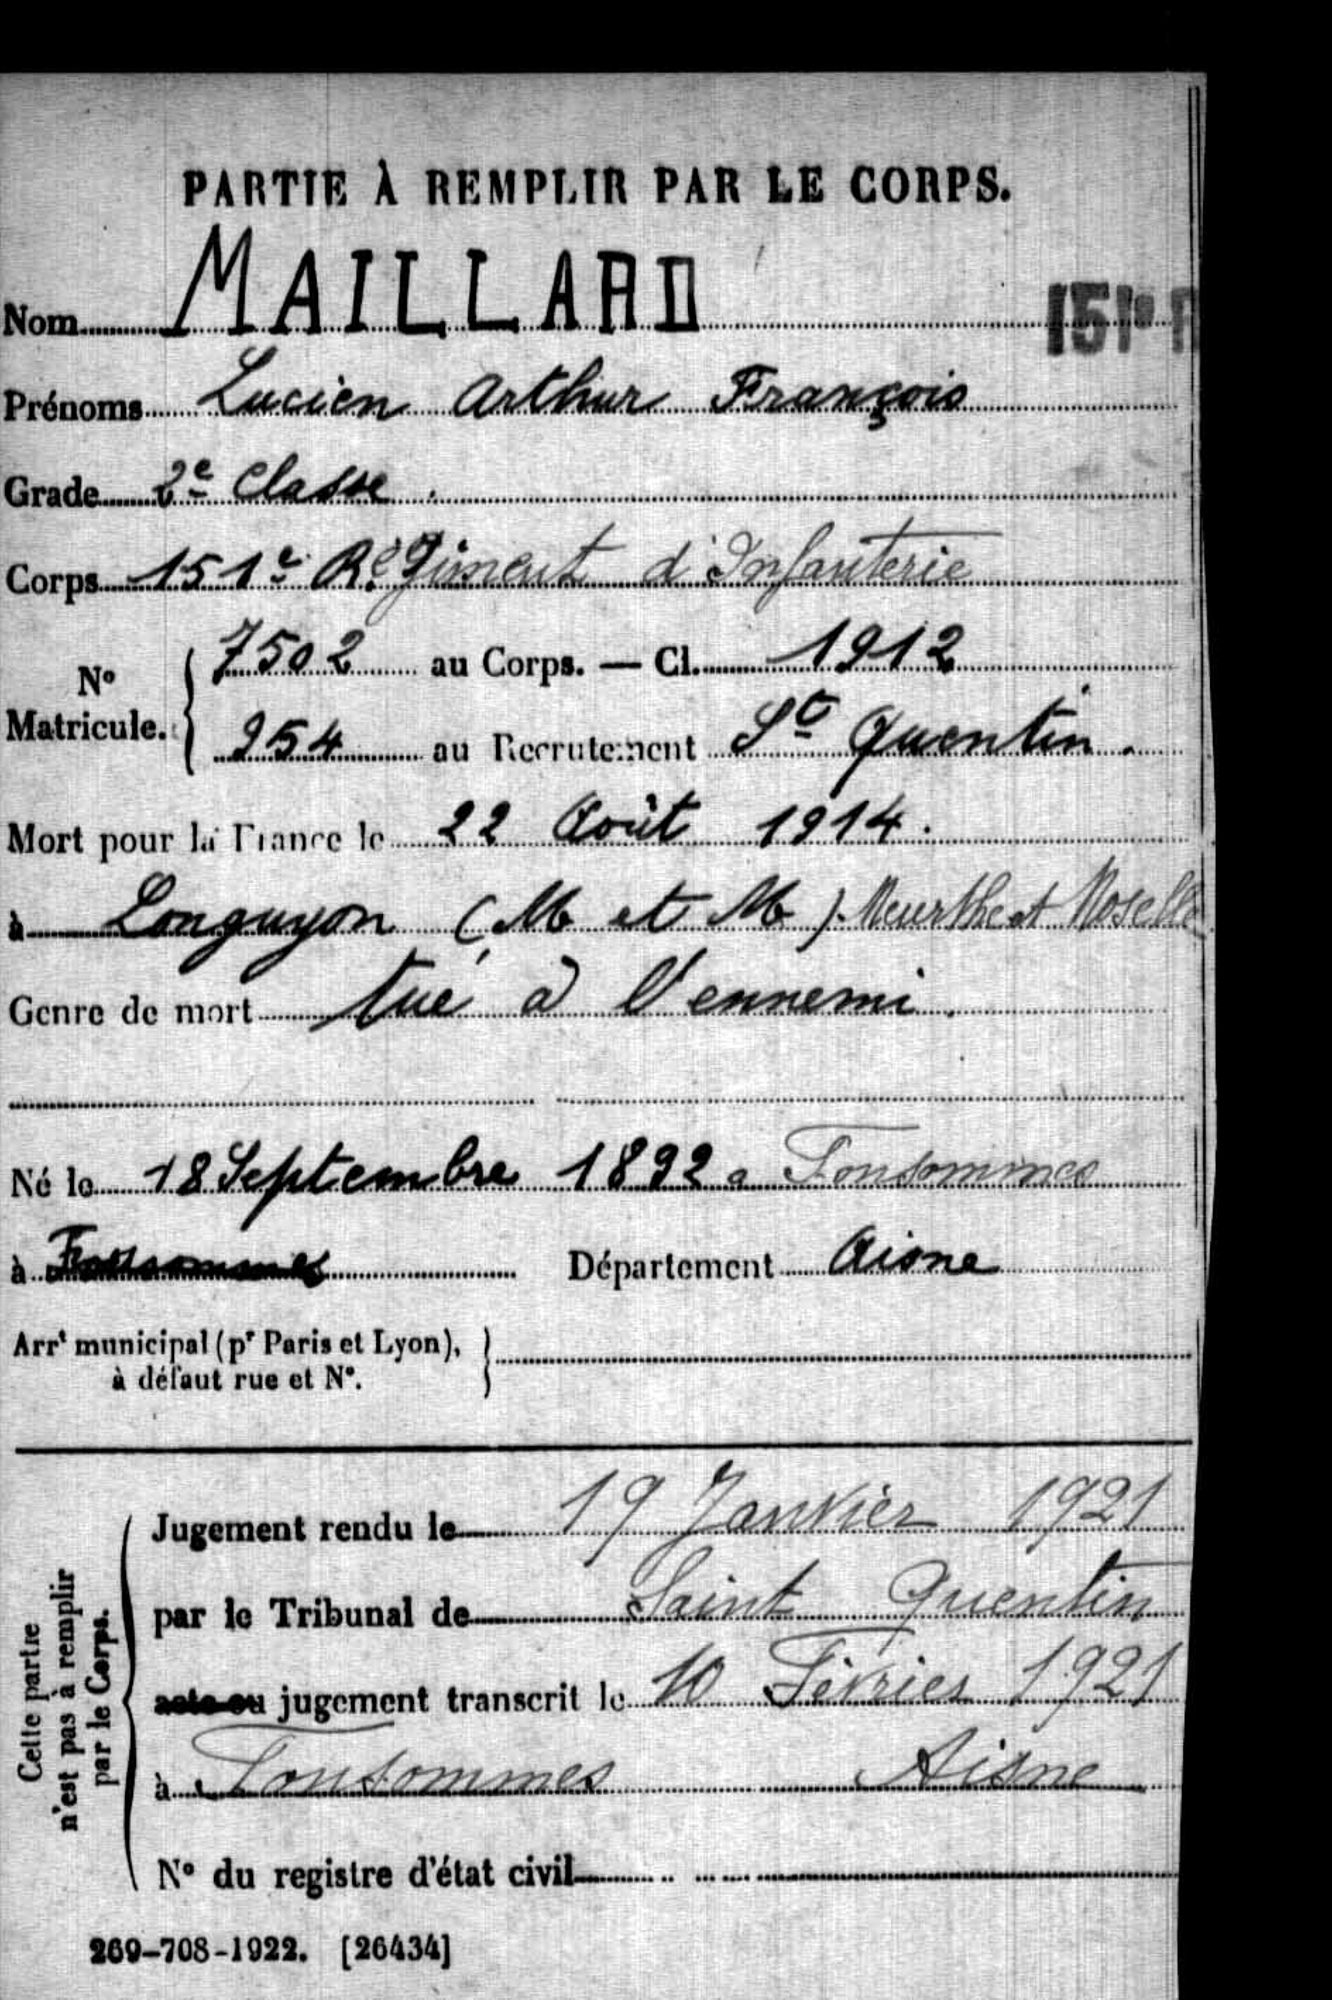 PARTIE À REMPLIR PAR LE CORPS.
Nom MAILLARD
151e R
Prénoms Lucien Arthur François
Grade 2e Classe.
Corps 151e Régiment d'Infanterie
N° Matricule. 7502 au Corps. — Cl. 1912
954 au Recrutement St Quentin.
Mort pour la France le 22 Août 1914.
à Longuyon (M et M). Meurthe et Moselle
Genre de mort tué à l'ennemi.
Né le 18 Septembre 1892 a Fonsommes
à Département Aisne
Arrt municipal (pr Paris et Lyon),
à défaut rue et N°.
Cette partie
n'est pas à remplir
par le Corps.
Jugement rendu le 19 Janvier 1921
par le Tribunal de Saint Quentin
acte ou jugement transcrit le 10 Février 1921
à Fonsommes Aisne
N° du registre d'état civil
269-708-1922. [26434]